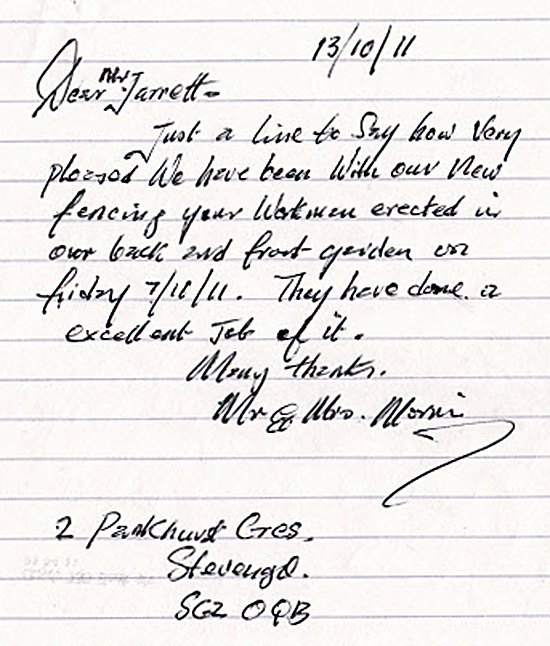 13/10/11
Dear Mr Jarrett-
Just a line to Say how Very
pleased We have been With our New
fencing your Workmen erected in
our back and front garden on
friday 7/10/11. They have done a
excellent Job of it.
Many thanks.
Mr & Mrs. Morris
2 Parkhurst Cres.
Stevenage.
SG2 0QB